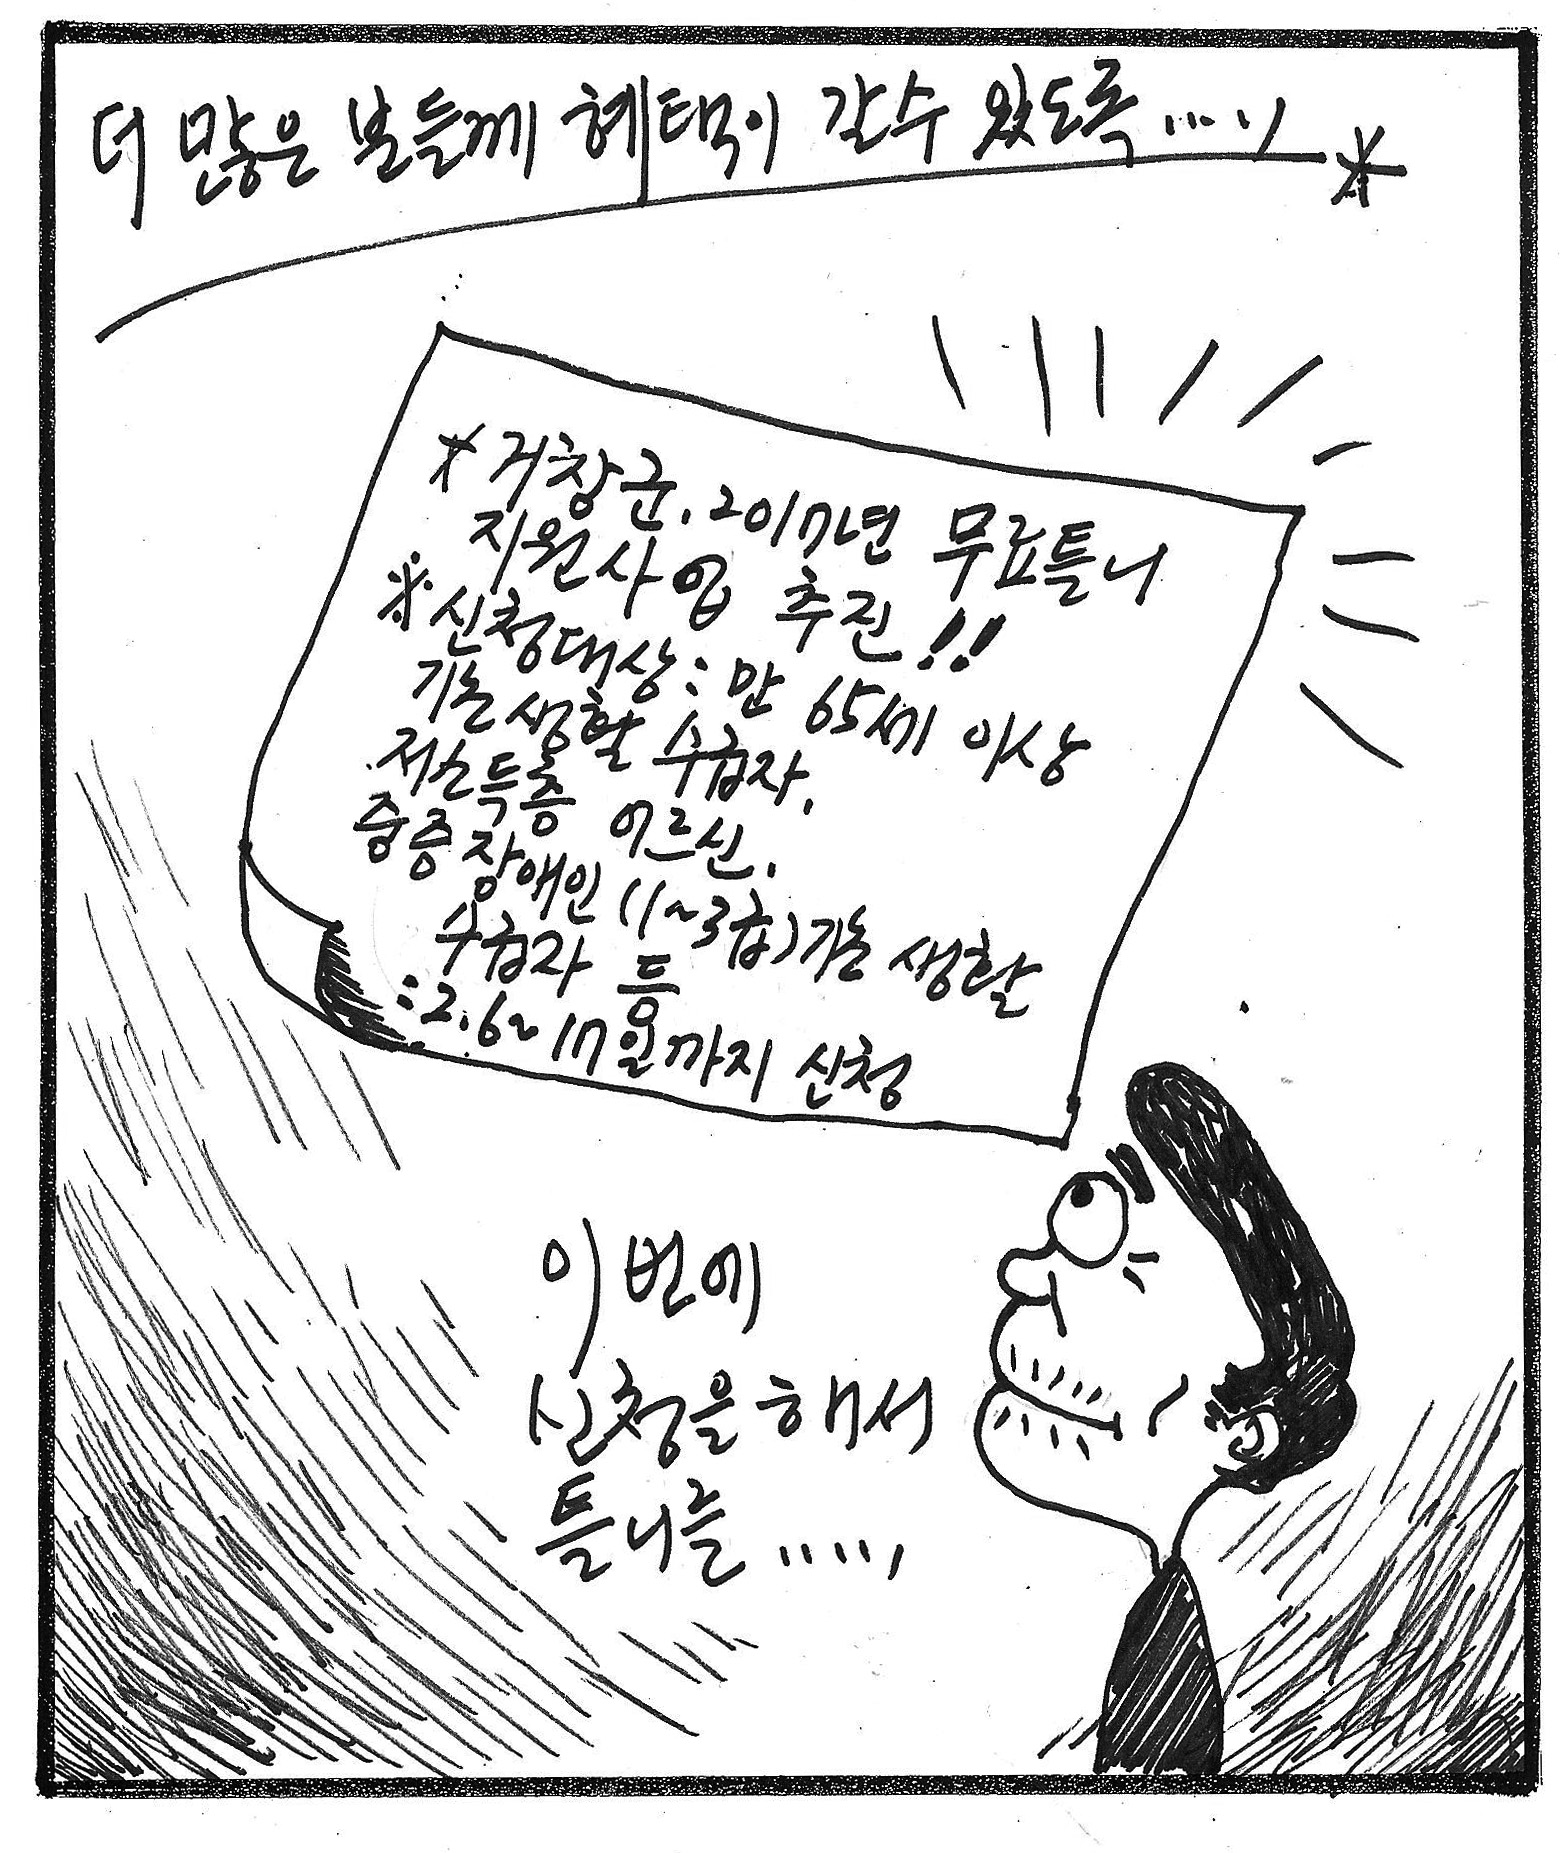 더 많은 분들께 혜택이 갈수 있도록.....
* 거창군. 2017년 무료틀니
지원사업 추진!!
※신청대상: 만 65세 이상
기초생활 수급자.
저소득층 어르신.
중증장애인(1~3급)기초생활
수급자 등
:2.6~17일까지 신청
이번에
신청을 해서
틀니를.....